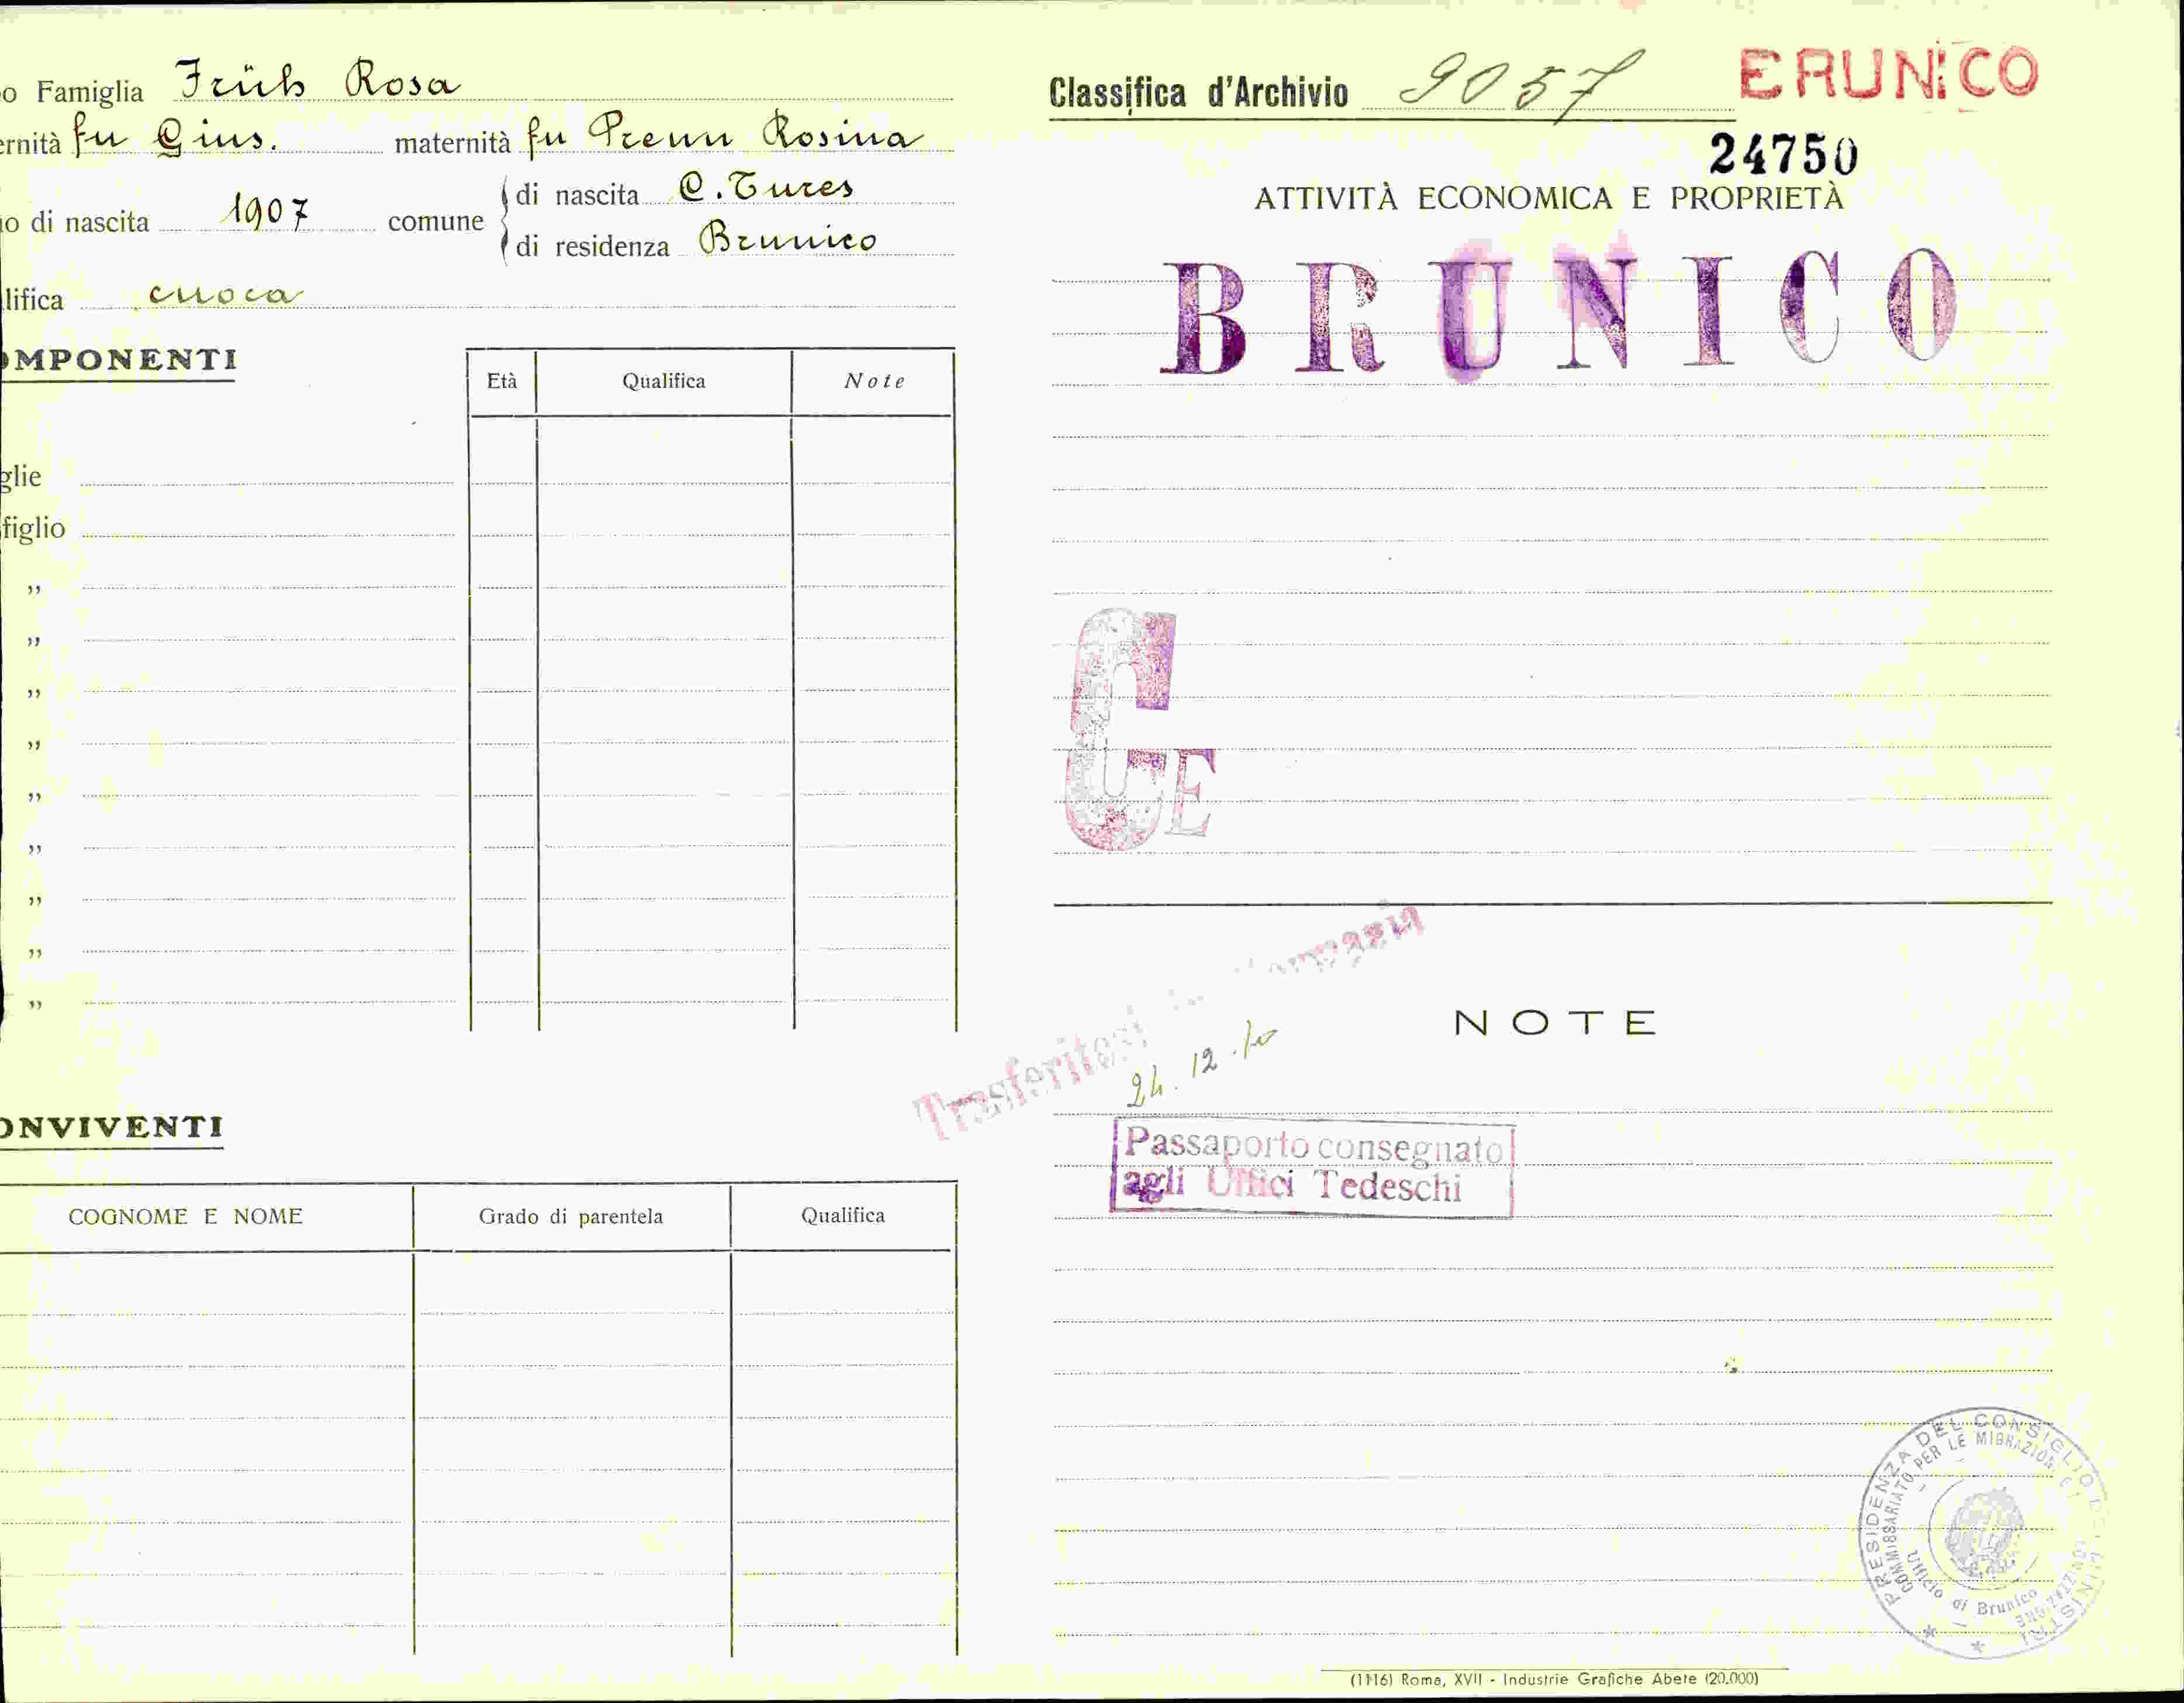 o Famiglia Früh Rosa
ernità fu Gius. maternità fu Prenn Rosina
o di nascita 1907 comune di nascita C. Tures
di residenza Brunico
lifica cuoca
OMPONENTI
Età Qualifica Note
glie
figlio
„
„
„
„
„
„
„
„
„
ONVIVENTI
COGNOME E NOME Grado di parentela Qualifica
Classifica d'Archivio 9057 BRUNICO
24750
ATTIVITÀ ECONOMICA E PROPRIETÀ
BRUNICO
C
E
Trasferitosi
24. 12.
NOTE
Passaporto consegnato
agli Uffici Tedeschi
PRESIDENZA DEL CONSIGLIO DEI MINISTRI
COMMISSARIATO PER LE MIGRAZIONI
Ufficio di Brunico
(1116) Roma, XVII - Industrie Grafiche Abete (20.000)